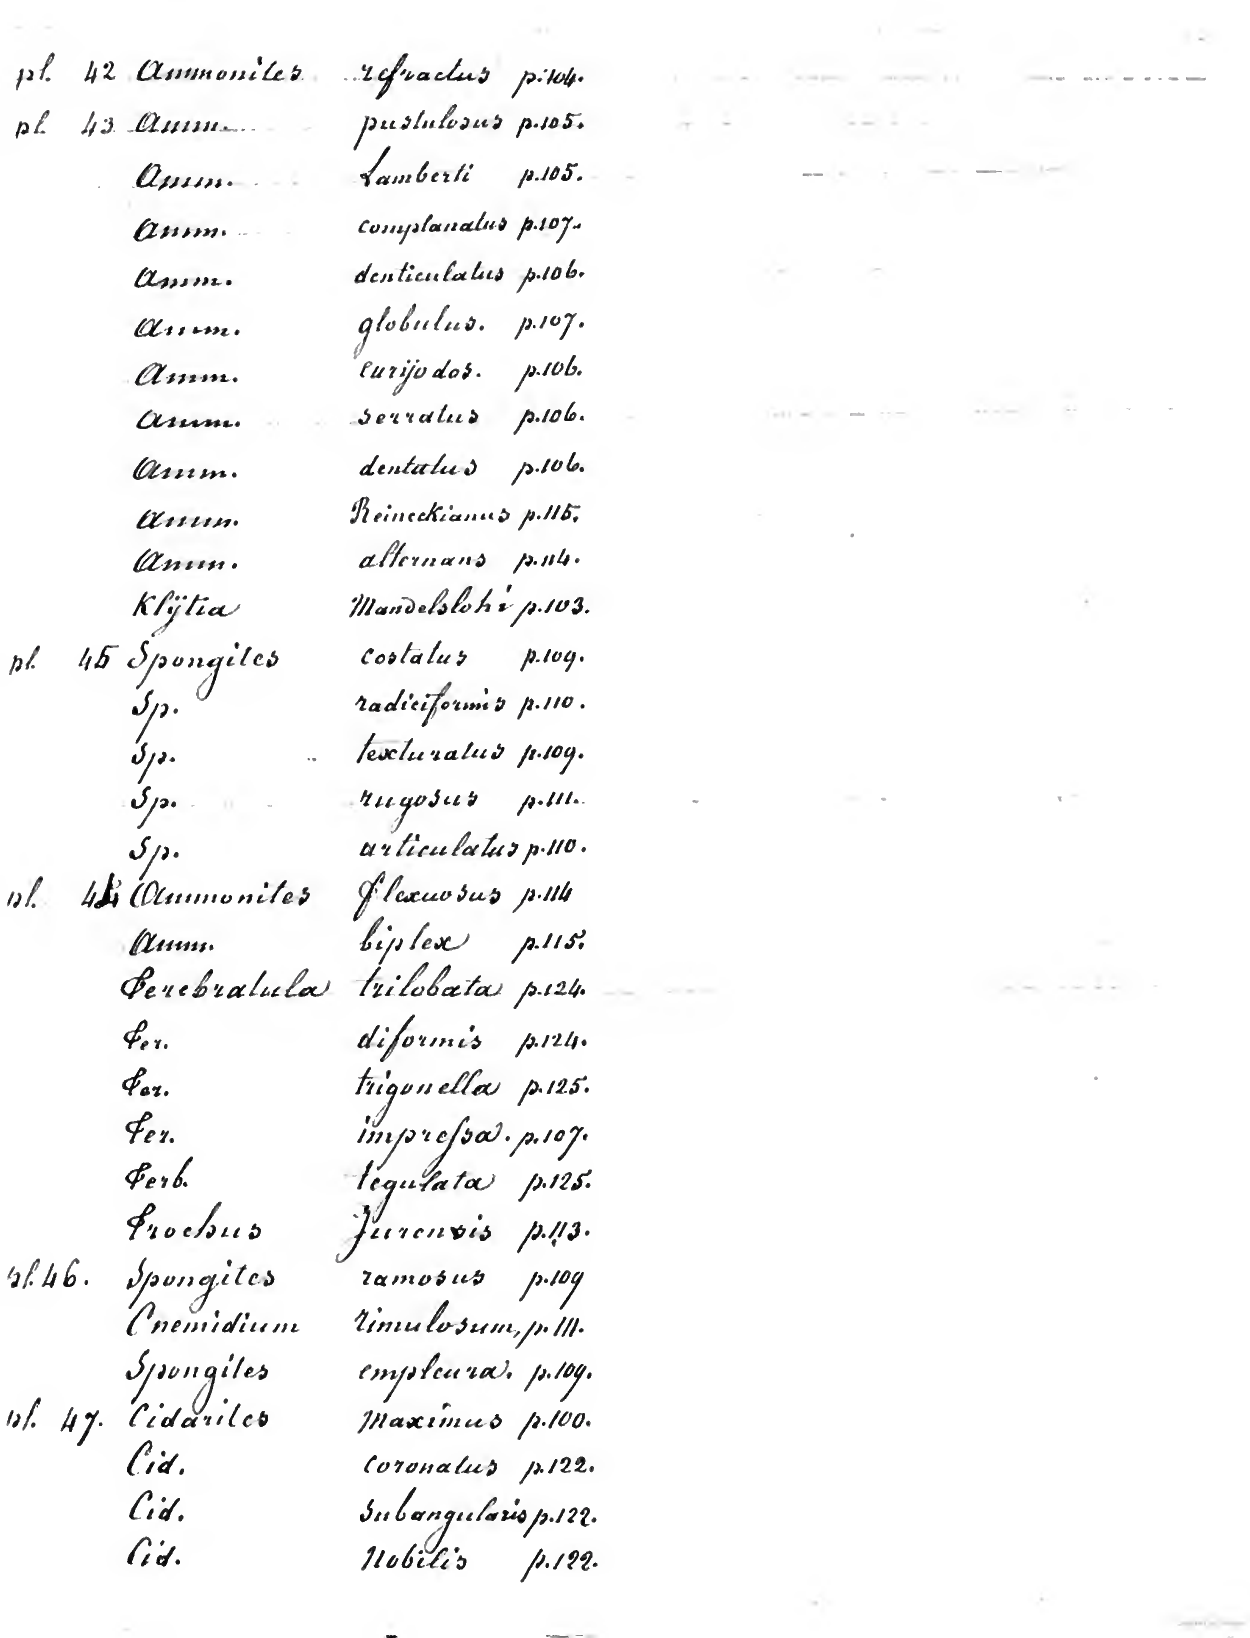 pl. 42 Ammonites refractus p.104.
pl. 43 Amm. pustulosus p.105.
Amm. Lamberti p.105.
Amm. complanatus p.107.
Amm. denticulatus p.106.
Amm. globulus. p.107.
Amm. curijodos. p.106.
Amm. serratus p.106.
Amm. dentatus p.106.
Amm. Reineckianus p.115.
Amm. alternans p.114.
Klÿtia Mandelslohi p.103.
pl. 45 Spongites costatus p.109.
Sp. radiciformis p.110.
Sp. texturatus p.109.
Sp. rugosus p.111.
Sp. articulatus p.110.
pl. 44 Ammonites flexuosus p.114
Amm. biplex p.115.
Terebratula trilobata p.124.
Ter. diformis p.124.
Ter. trigonella p.125.
Ter. impreſsa. p.107.
Terb. tegulata p.125.
Trochus Jurensis p.113.
pl. 46. Spongites ramosus p.109
Cnemidium rimulosum, p.111.
Spongites empleura. p.109.
pl. 47. Cidarites Maximus p.100.
Cid. coronatus p.122.
Cid. Subangularis p.122.
Cid. Nobilis p.122.